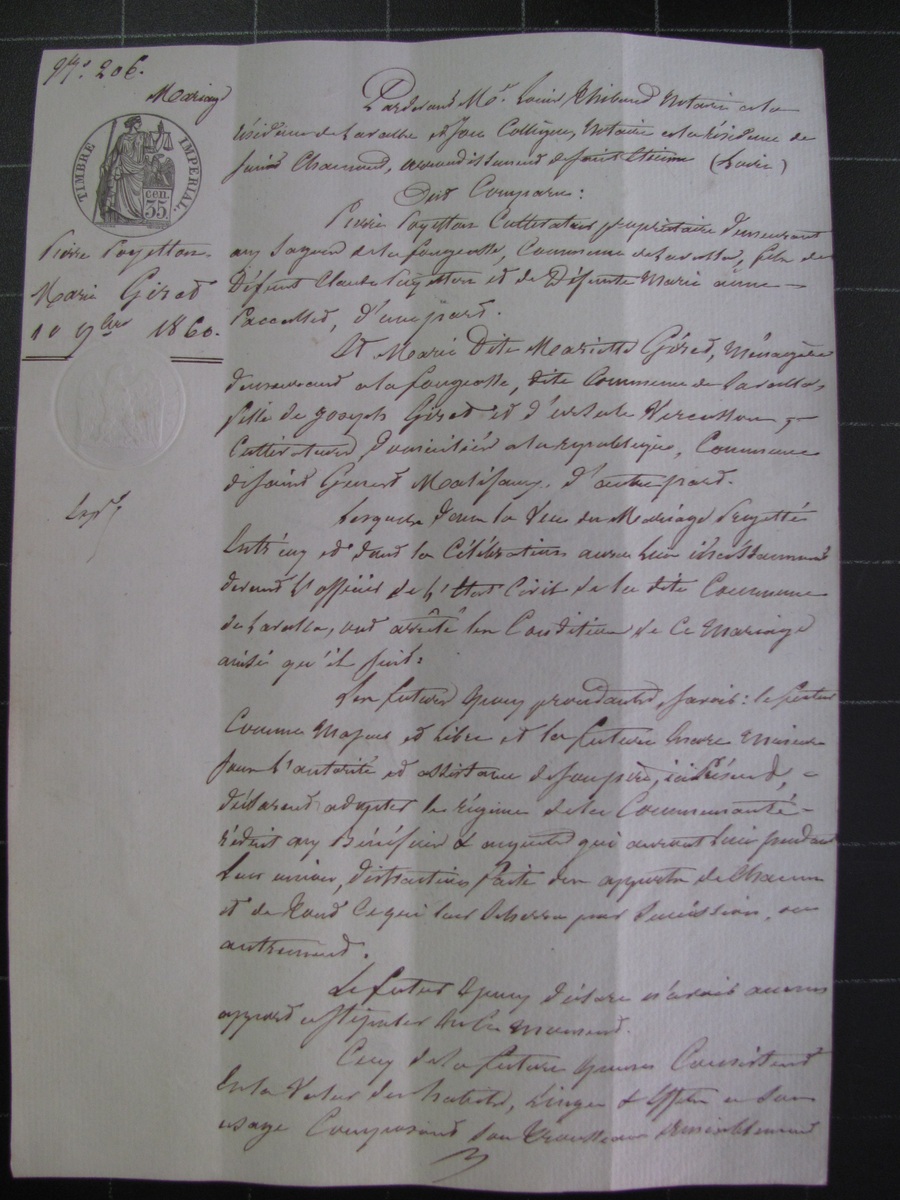 206.
Mariage
TIMBRE IMPERIAL.
cen.
35
Pierre Poyetton
Marie Girod
10 9bre 1860.
Pardevant Me Louis Thibaud Notaire à la
résidence de Lavalla et son Collègue, Notaire à la résidence de
saint Chamond, arrondissement de saint Etienne (Loire)
Ont Comparu:
Pierre Poyetton Cultivateur propriétaire demeurant
au de la fougeolle, Commune de Lavalla, fils de
Défunt Claude Poyetton et de Défunte Marie anne
d'une part.
Et Marie Dite Mariette Girod, Ménagère
demeurant à la fougeolle, dite Commune de Lavalla,
fille de Joseph Girod et d'
Cultivateurs, domiciliés à la république, Commune
de saint Genest Malifaux, d'autre part.
Lesquels dans la Vue du Mariage projetté
Entr'eux et dont la Célébration aura lieu incessamment
devant l'officier de l'Etat Civil de la dite Commune
de Lavalla, ont arrêté les Conditions de Ce Mariage
ainsi qu'il suit:
Les futurs époux procédants, savoir: le futur
Comme Majeur et libre et la future Encore Mineure
sous l'autorité et assistance de son père, ici Présent,
déclarent adopter le régime de la Communauté
réduit aux Bénéfices & acquets qui auront lieu pendant
leur union, distraction faite des apports de Chacun
et de tout Ce qui leur écherra par Succession, ou
autrement.
Le futur époux déclare n'avoir aucuns
apports à stipuler En Ce Moment.
Ceux de la future épouse Consistent
En la Valeur des habits, linges & effets à Son
usage Composant Son Trousseau